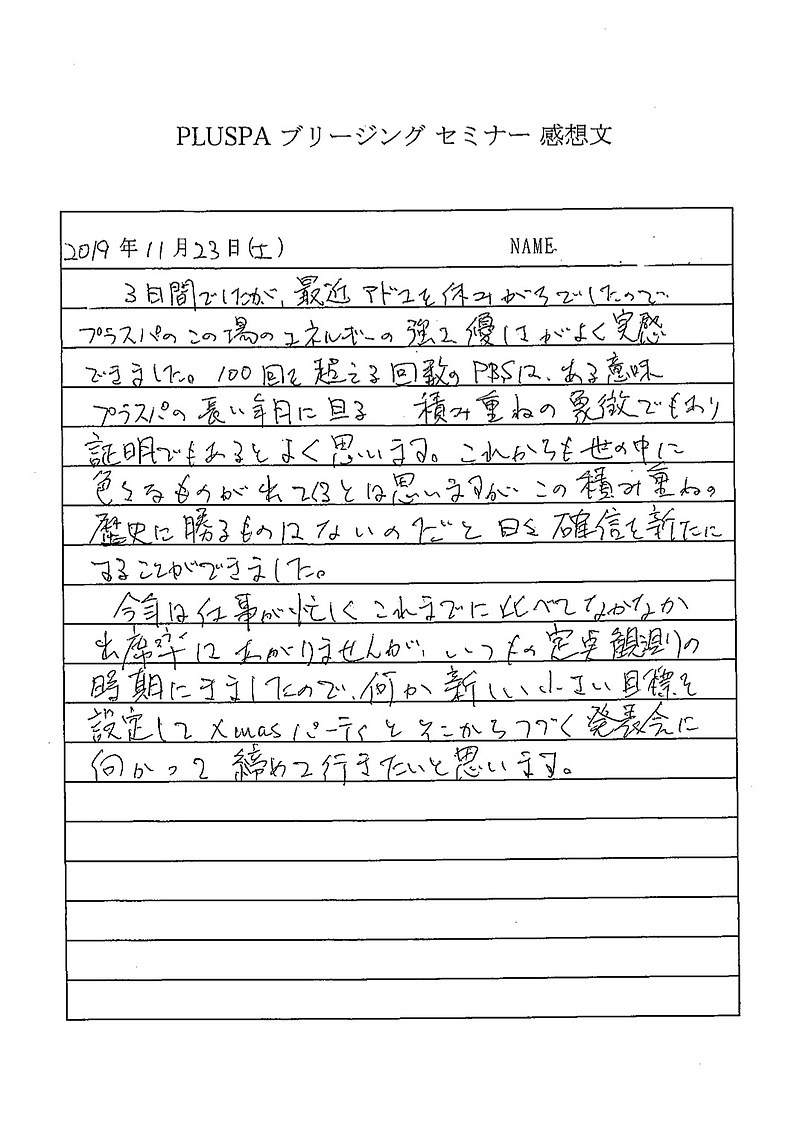 PLUSPA ブリージング セミナー 感想文
2019年11月23日(土) NAME
3日間でしたが、最近アドユを休みがちでしたので
プラスパのこの場のエネルギーの強さ優しさがよく実感
できました。100回を超える回数のPBSは、ある意味
プラスパの長い年月に亘る 積み重ねの象徴でもあり
証明でもあるとよく思います。これからも世の中に
色々なものが出てくるとは思いますが この積み重ねの
歴史に勝るものはないのだと 日々確信を新たに
することができました。
今年は仕事が忙しく これまでに比べてなかなか
出席率は上がりませんが、いつもの定点観測の
時期にきましたので、何か新しい小さい目標を
設定して Xmasパーティとそこからつづく発表会に
向かって 締めて行きたいと思います。